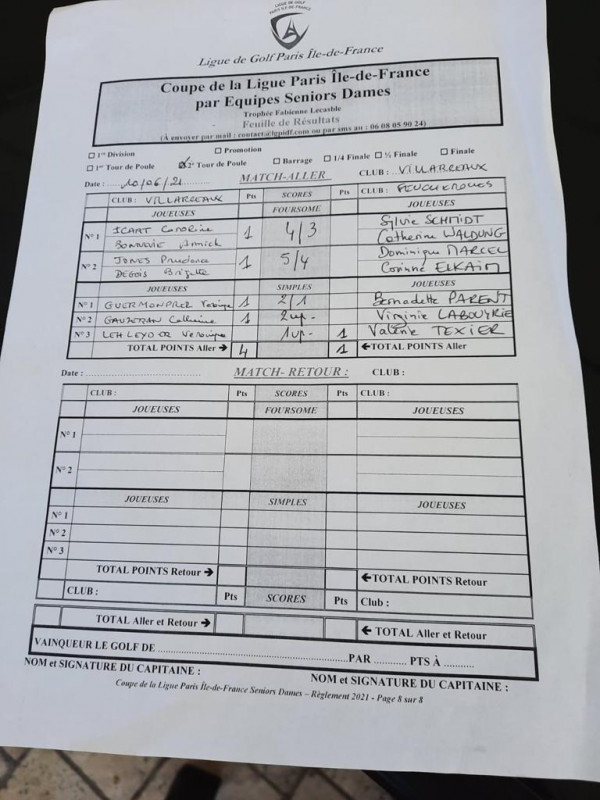 LIGUE DE GOLF
PARIS ILE-DE-FRANCE
Ligue de Golf Paris Île-de-France
Coupe de la Ligue Paris Île-de-France
par Equipes Seniors Dames
Trophée Fabienne Lecasble
Feuille de Résultats
(À envoyer par mail : contact@lgpidf.com ou par sms au : 06 08 05 90 24)
☐ 1ère Division ☐ Promotion
☐ 1er Tour de Poule ☒ 2e Tour de Poule ☐ Barrage ☐ 1/4 Finale ☐ ½ Finale ☐ Finale
Date : 10/06/21 MATCH-ALLER CLUB : VILLARCEAUX
CLUB : VILLARCEAUX Pts SCORES Pts CLUB : FEUCHEROLLES
JOUEUSES FOURSOME JOUEUSES
N° 1 ICART Caroline 1 4/3 Sylvie SCHMIDT
BONNEVIE Annick Catherine WALDUNG
N° 2 JONES Prudence 1 5/4 Dominique MARCEL
DEGOIS Brigitte Corinne ELKAIM
JOUEUSES SIMPLES JOUEUSES
N° 1 GUERMONPREZ 1 2/1 Bernadette PARENT
N° 2 GAUZERAN Catherine 1 2up Virginie LABOUYRIE
N° 3 LEHLEYDER Véronique 1up 1 Valérie TEXIER
TOTAL POINTS Aller → 4 1 ← TOTAL POINTS Aller
Date : MATCH- RETOUR : CLUB :
CLUB : Pts SCORES Pts CLUB :
JOUEUSES FOURSOME JOUEUSES
N° 1
N° 2
JOUEUSES SIMPLES JOUEUSES
N° 1
N° 2
N° 3
TOTAL POINTS Retour → ←TOTAL POINTS Retour
CLUB : Pts SCORES Pts Club :
TOTAL Aller et Retour → ← TOTAL Aller et Retour
VAINQUEUR LE GOLF DE ..... PAR ..... PTS À .....
NOM et SIGNATURE DU CAPITAINE : NOM et SIGNATURE DU CAPITAINE :
Coupe de la Ligue Paris Île-de-France Seniors Dames – Règlement 2021 - Page 8 sur 8